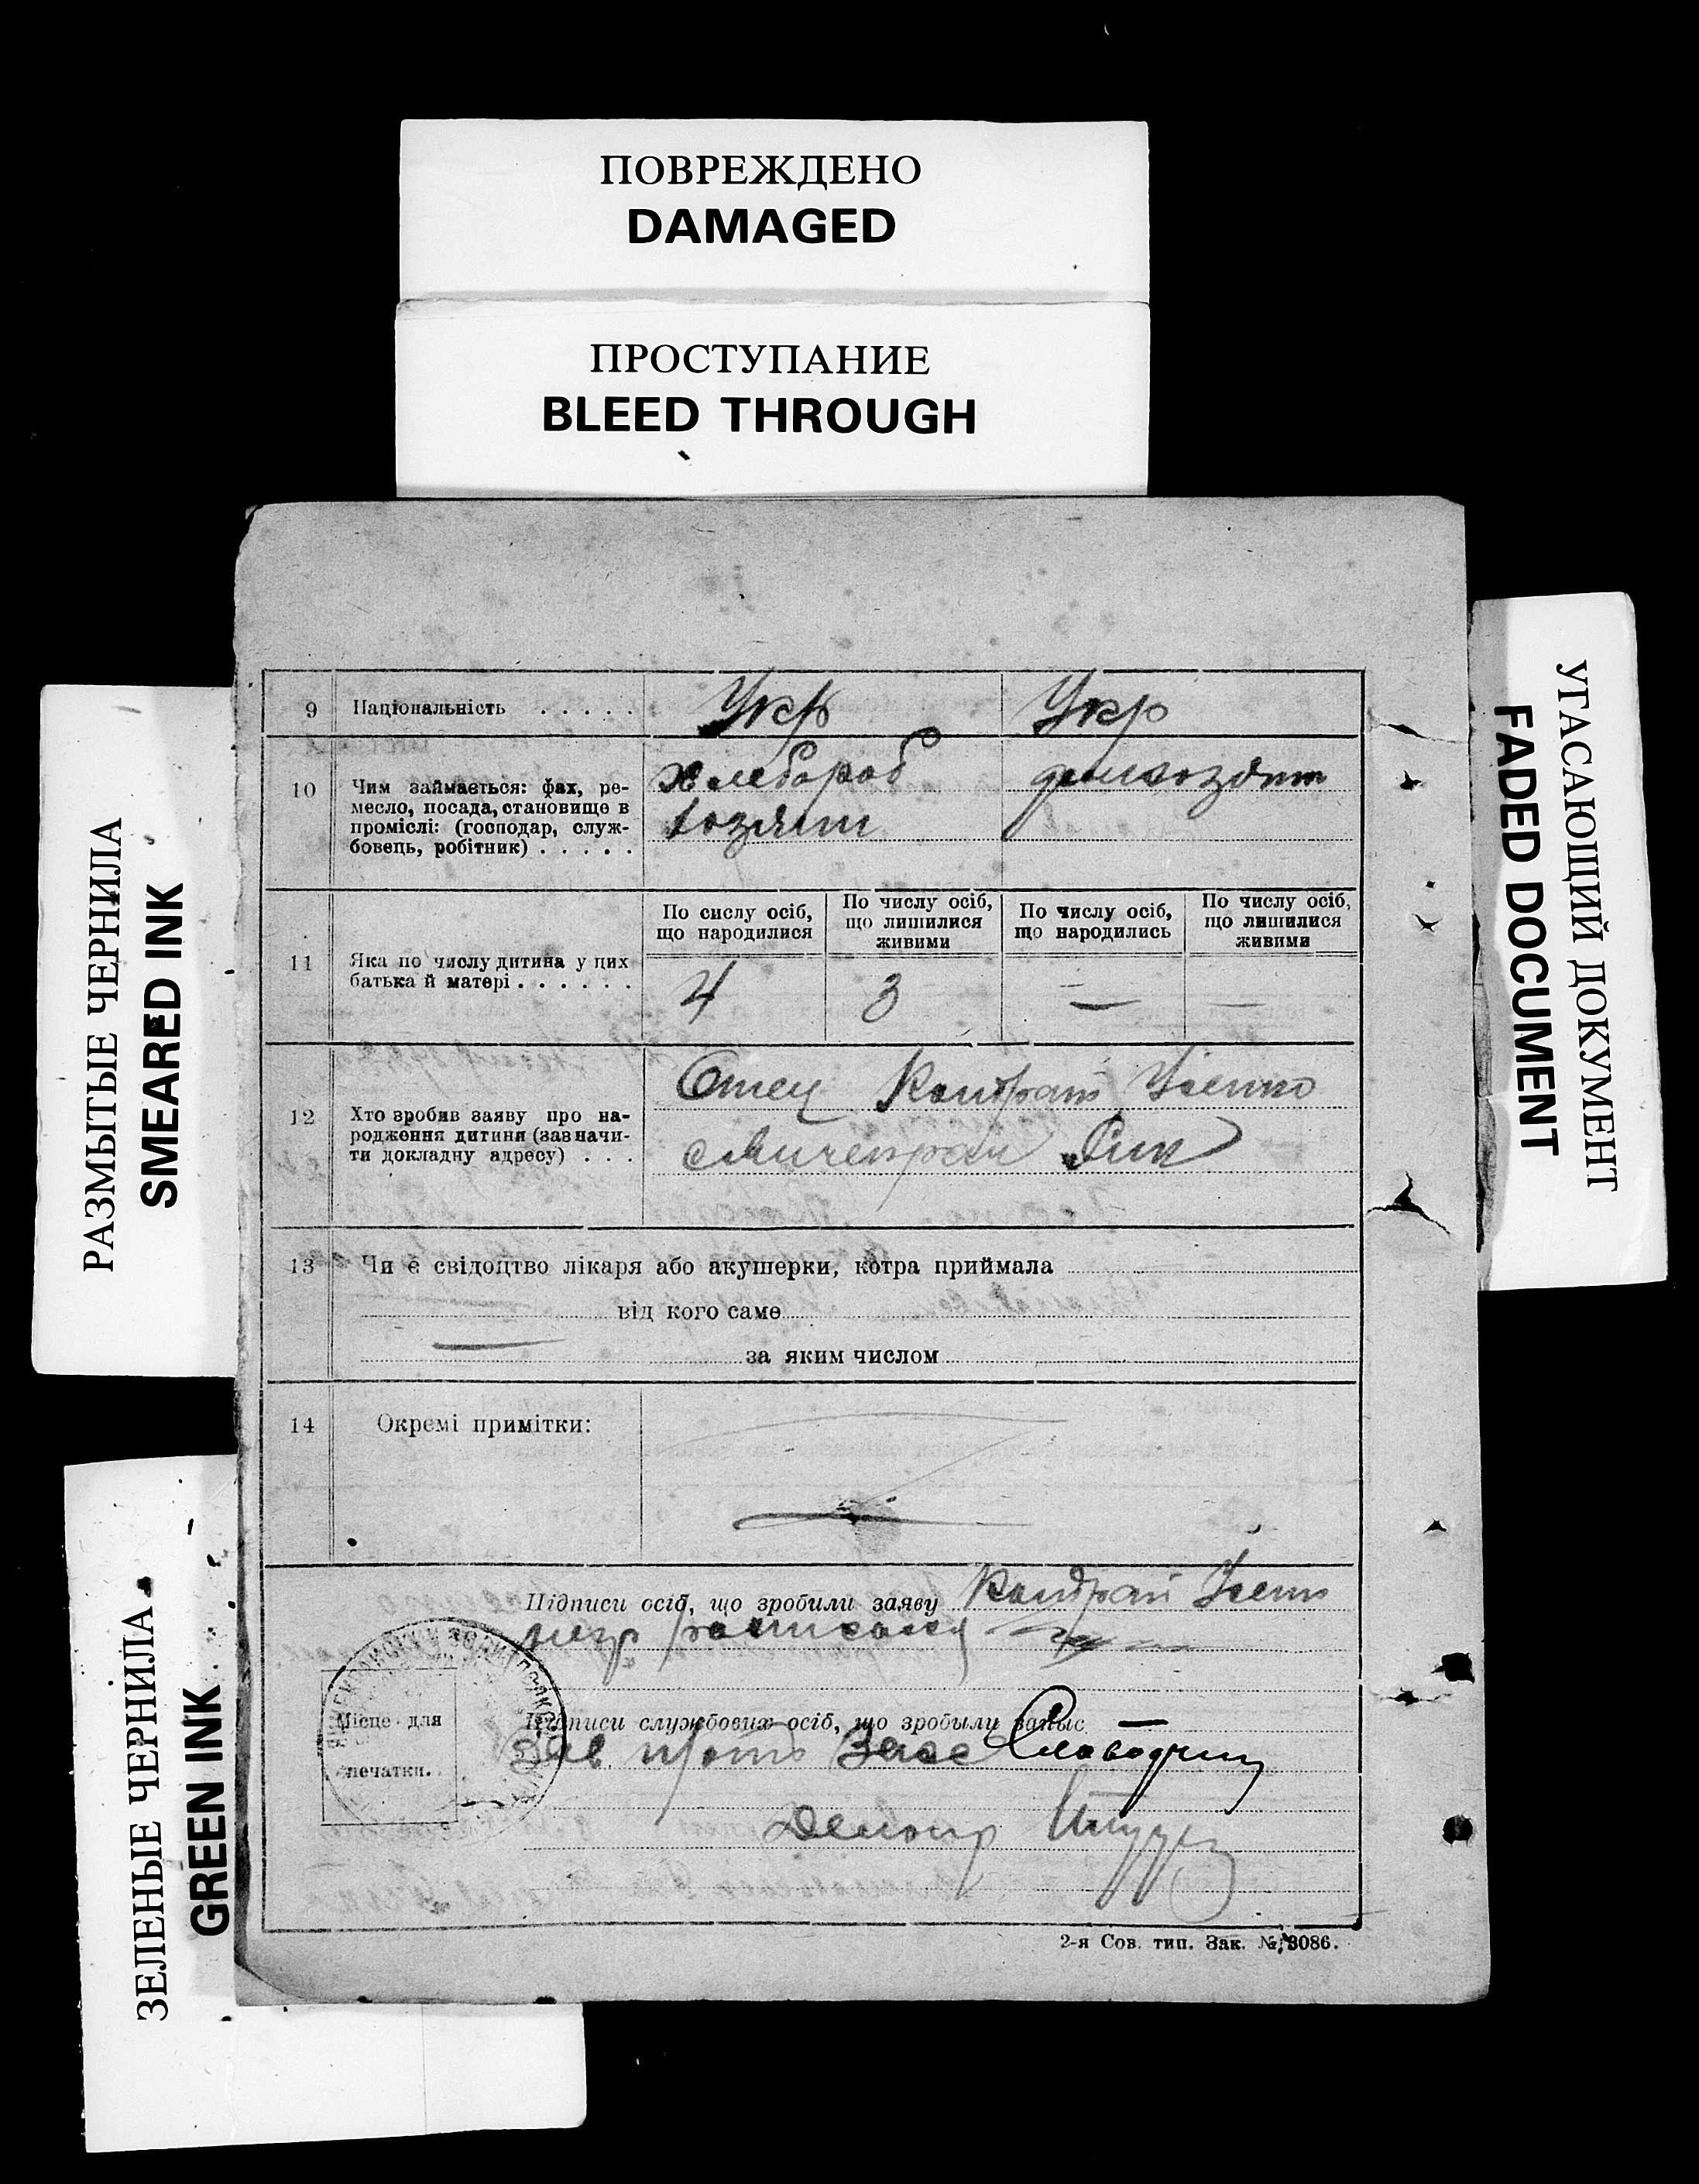 ПОВРЕЖДЕНО
DAMAGED
ПРОСТУПАНИЕ
BLEED THROUGH
РАЗМЫТЫЕ ЧЕРНИЛА
SMEARED INK
ЗЕЛЕНЫЕ ЧЕРНИЛА
GREEN INK
УГАСАЮЩИЙ ДОКУМЕНТ
FADED DOCUMENT
9 Національність . . . . . Укр Укр
10 Чим займається: фах, ре-
месло, посада, становище в
проміслі: (господар, служ-
бовець, робітник) . . . . .
хлебороб
хозяин
домхозяин
11 Яка по числу дитина у цих
батька й матері . . . . . .
По сислу осіб,
що народилися
По числу осіб,
що лишилися
живими
По числу осіб,
що народились
По числу осіб,
що лишилися
живими
4 3 — —
12 Хто зробив заяву про на-
родження дитиня (зазначи-
ти докладну адресу) . . .
Отец Кондрат
13 Чи є свідоцтво лікаря або акушерки, котра приймала
від кого саме
за яким числом
14 Окремі примітки:
Підписи осіб, що зробили заяву Кондрат
Місце для
печатки.
Підписи службових осіб, що зробыли запыс
Зав
2-я Сов. тип. Зак. № 3086.